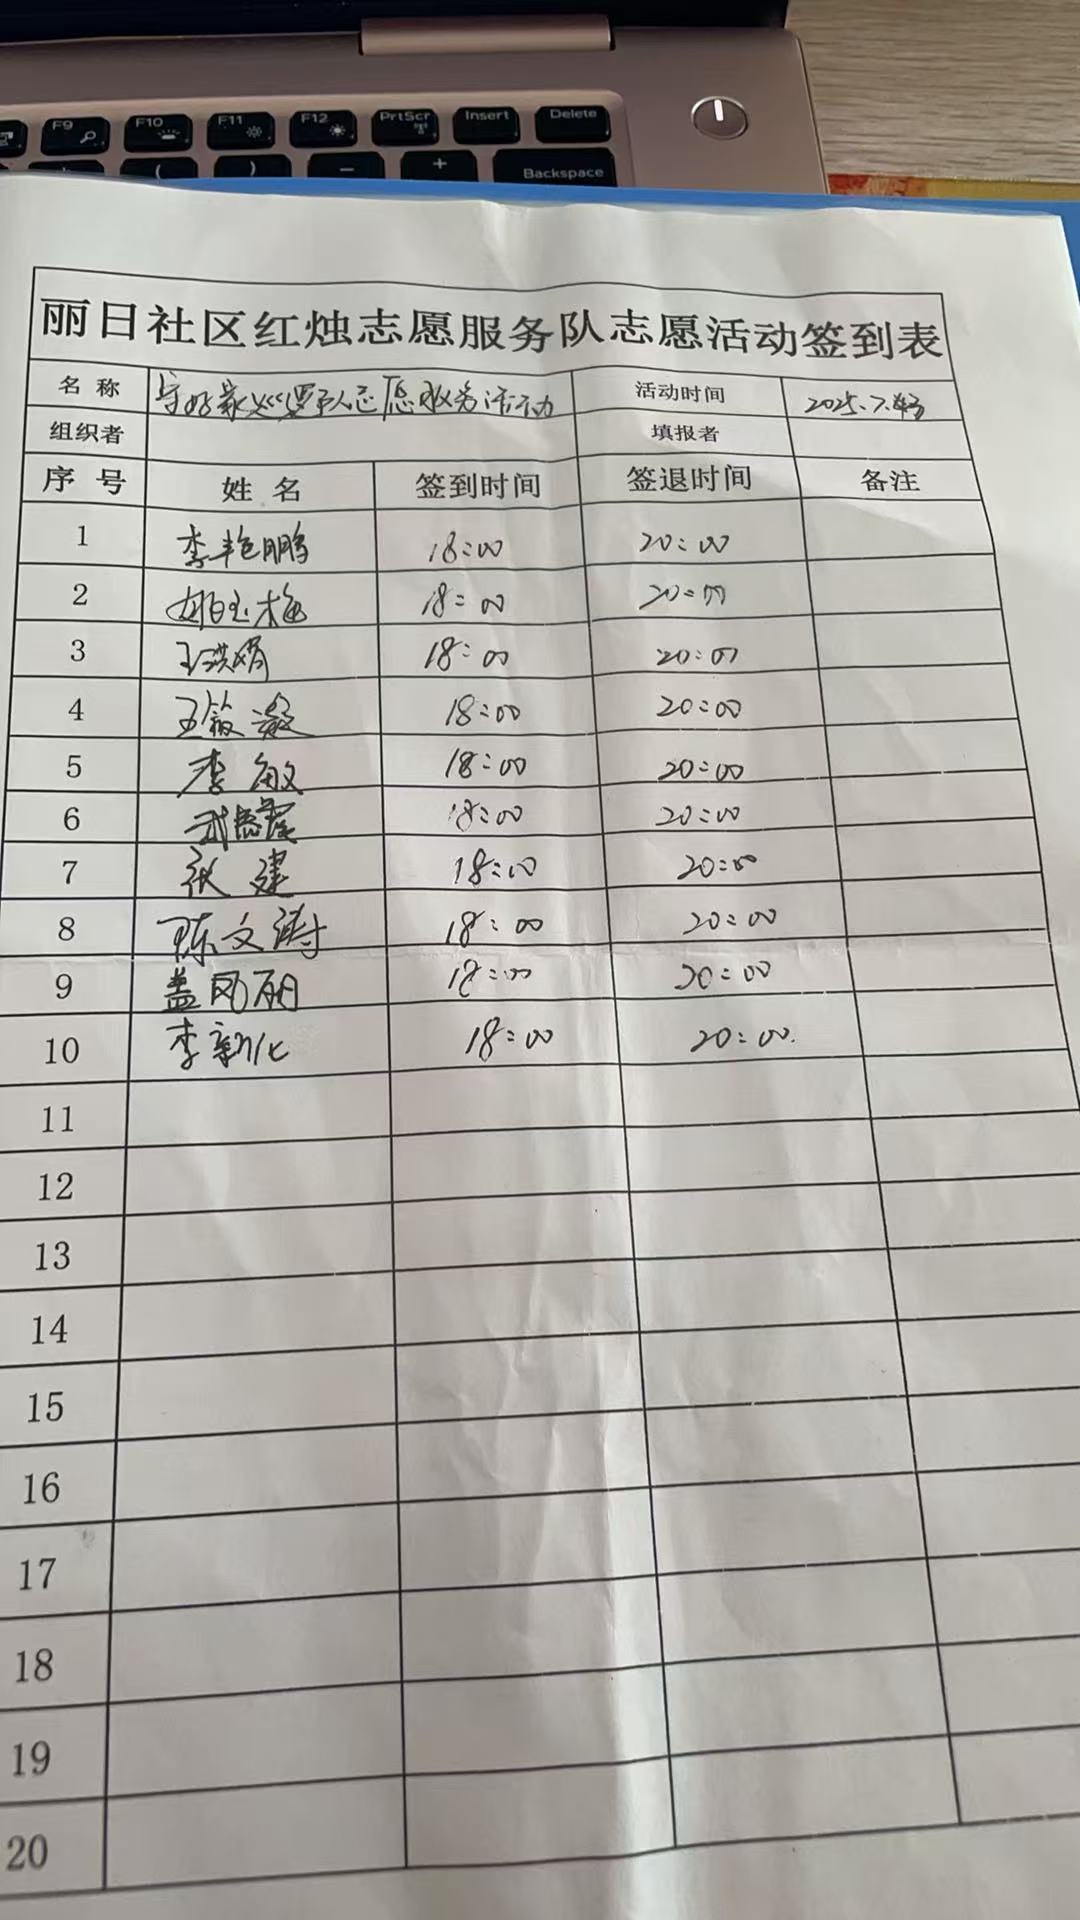 F9 F10 F11 F12 PrtScr Insert Delete
( ) - + Backspace
丽日社区红烛志愿服务队志愿活动签到表
名称 守好家巡逻队志愿服务活动 活动时间 2025.7.
组织者 填报者
序号 姓名 签到时间 签退时间 备注
1 李艳鹏 18:00 20:00
2 18:00 20:00
3 王洪娟 18:00 20:00
4 王 18:00 20:00
5 李敏 18:00 20:00
6 武 18:00 20:00
7 张建 18:00 20:00
8 陈文涛 18:00 20:00
9 盖凤丽 18:00 20:00
10 李新化 18:00 20:00.
11
12
13
14
15
16
17
18
19
20